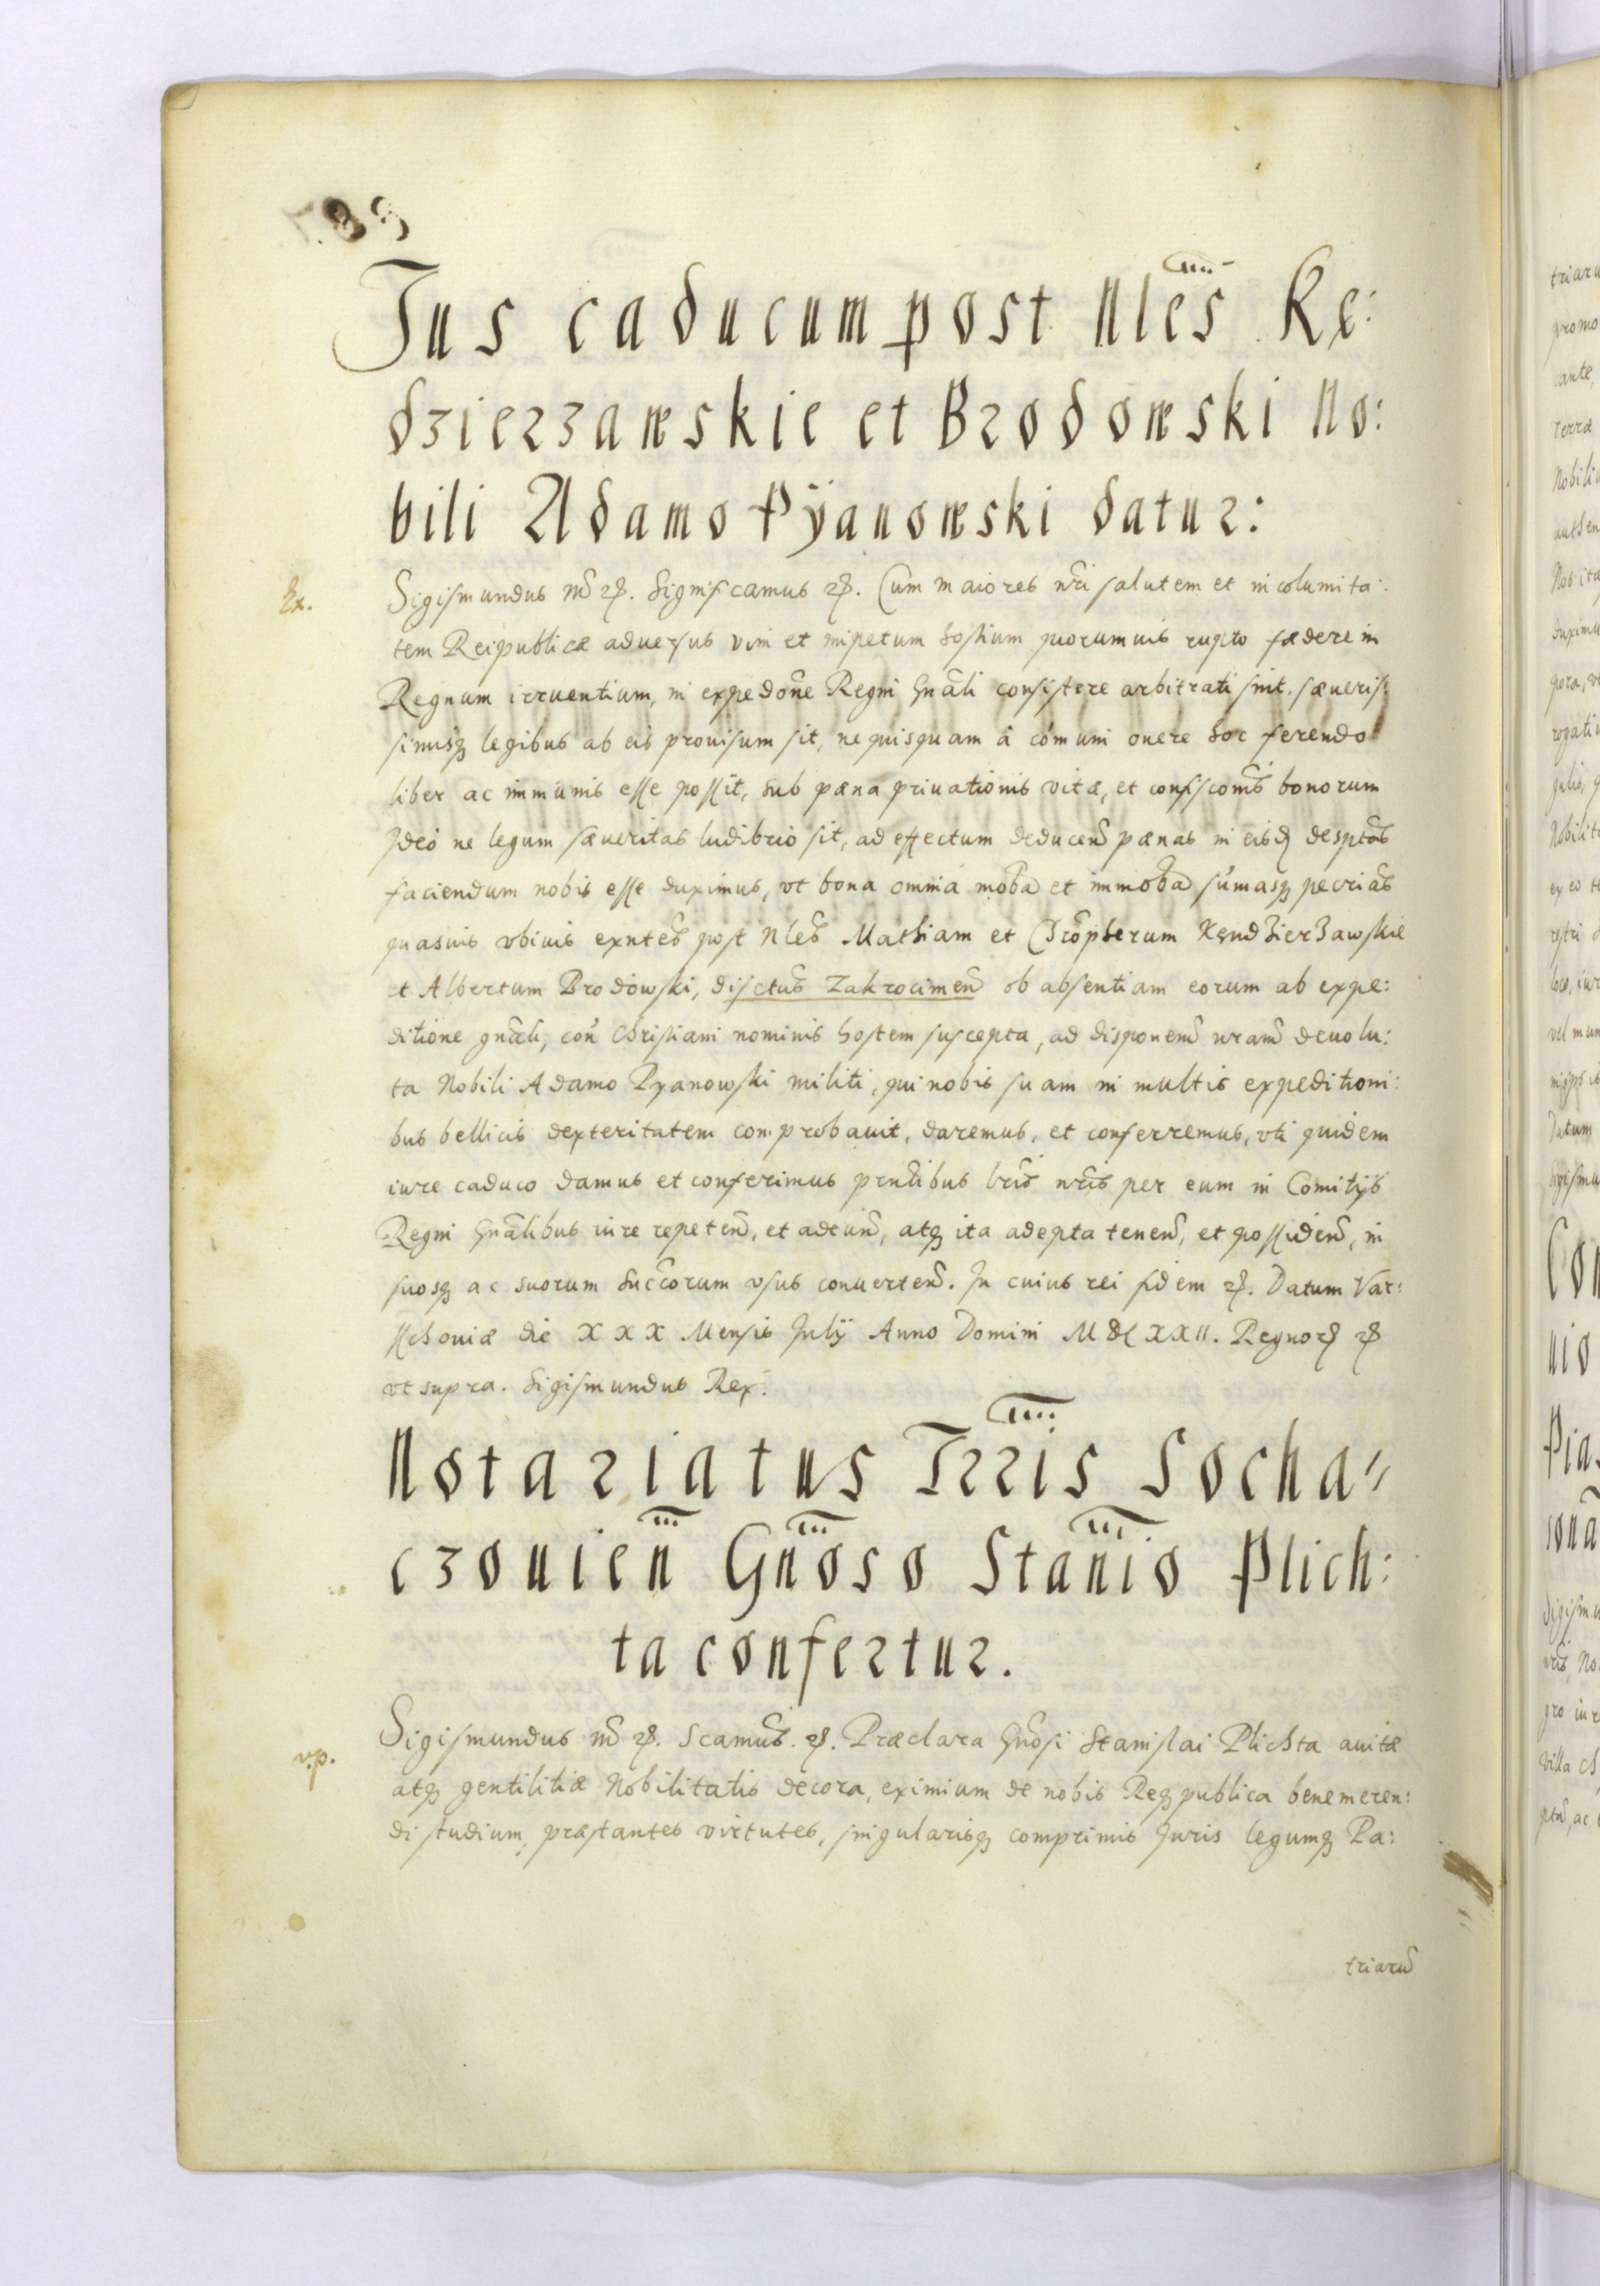 Jus caducum post Nles Kę:
dzierzawskie et Brodowski No:
bili Adamo Pÿanowski datur:
Ex.
Sigismundus etc. Significamus etc. Cum maiores nri salutem et incolumita:
tem Reipublicæ aduersus vim et impetum hostium quorumuis rupto fædere in
Regnum irruentium, in expedone Regni Gnali consistere arbitrati sint, sæueris:
simisq legibus ab eis prouisum sit, ne quisquam â comuni onere hoc ferendo
liber ac immunis esse possit, sub pæna priuationis vitæ, et confisconis bonorum
Ideo ne legum sæueritas ludibrio sit, ad effectum deducen pænas in eisd desptas
faciendum nobis esse duximus, vt bona omnia moba et immoba sumasq pecrias
quasuis vbiuis exntes post Nles Mathiam et Chropherum Kęndzierzawskie
et Albertum Brodowski, disctus Zakrocimen ob absentiam eorum ab expe:
ditione gnali, con Christiani nominis hostem suscepta, ad disponem nram deuolu:
ta Nobili Adamo Pyanowski militi, qui nobis suam in multis expeditioni:
bus bellicis dexteritatem comprobauit, daremus, et conferremus, vti quidem
iure caduco damus et conferimus prntibus lris nris per eum in Comitijs
Regni Gnalibus iure repeten, et adeun, atq ita adepta tenen, et possiden, in
suosq ac suorum Succorum vsus conuerten. In cuius rei fidem etc. Datum Var:
sschouiæ die XXX Mensis Julij Anno Domini MDCXXII. Regnor etc
vt supra. Sigismundus Rex.
Notariatus Trris Socha"
czouien Gnoso Stanio Plich:
ta confertur.
vp.
Sigismundus etc. Scamus etc. Præclara Gnosi Stanislai Plichta auitæ
atq gentilitiæ Nobilitatis decora, eximium de nobis Reqpublica benemeren:
di studium, præstantes virtutes, singularisq comprimis Juris legumq Pa:
triaru